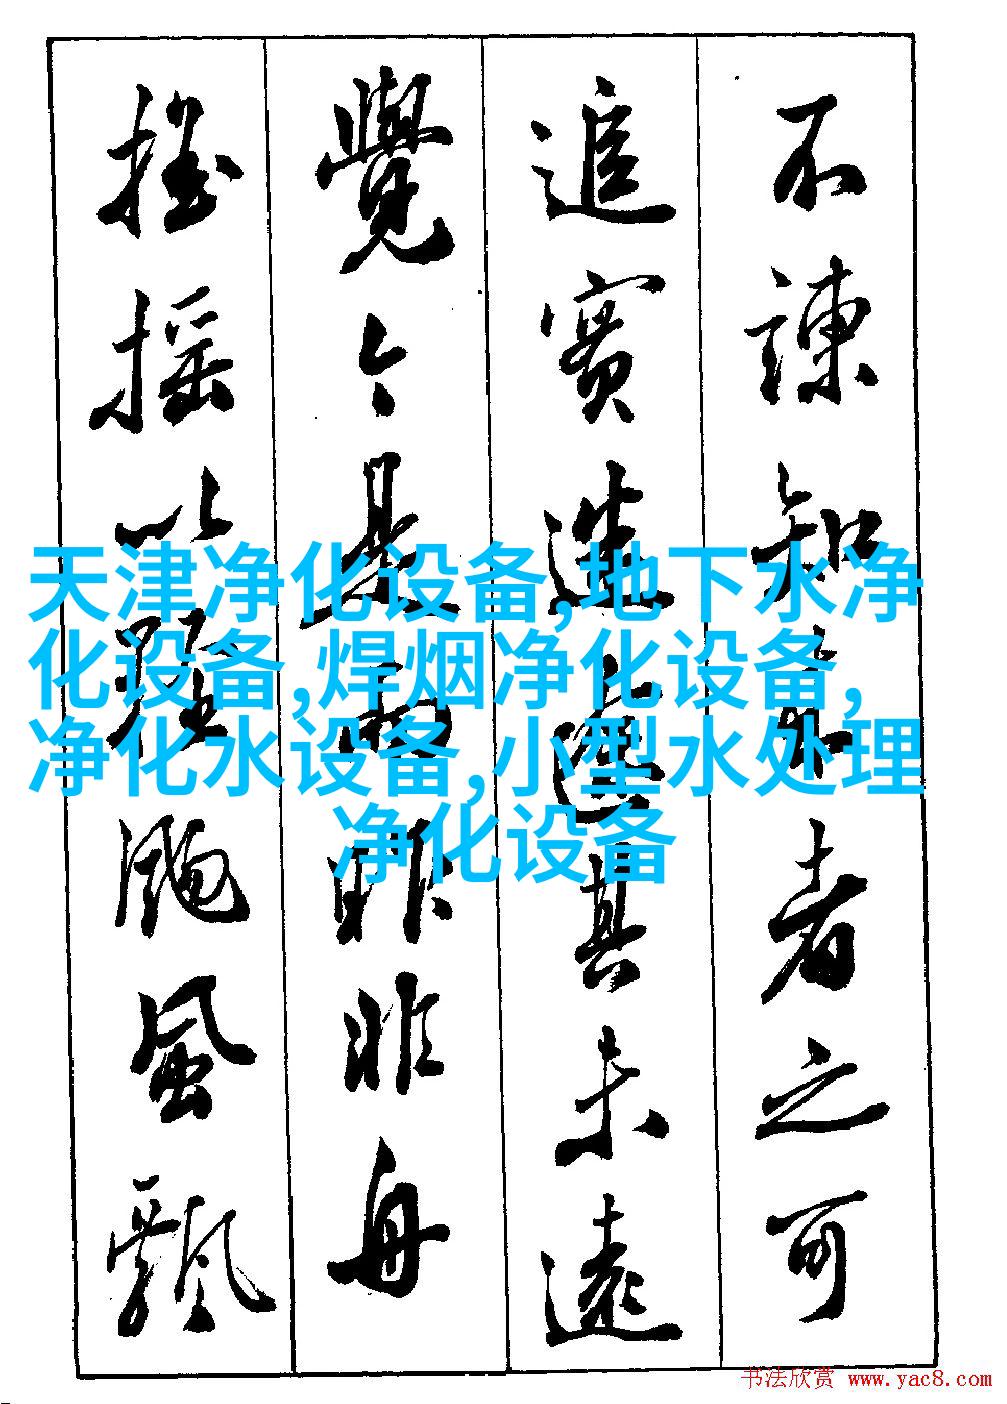 不諫知来者之可
追實迷途其未遠
覺今是而昨非舟
摇摇以軽颺風飄
天津净化设备,地下水净
化设备,焊烟净化设备,
净化水设备,小型水处理
净化设备
书法欣赏 www.yac8.com